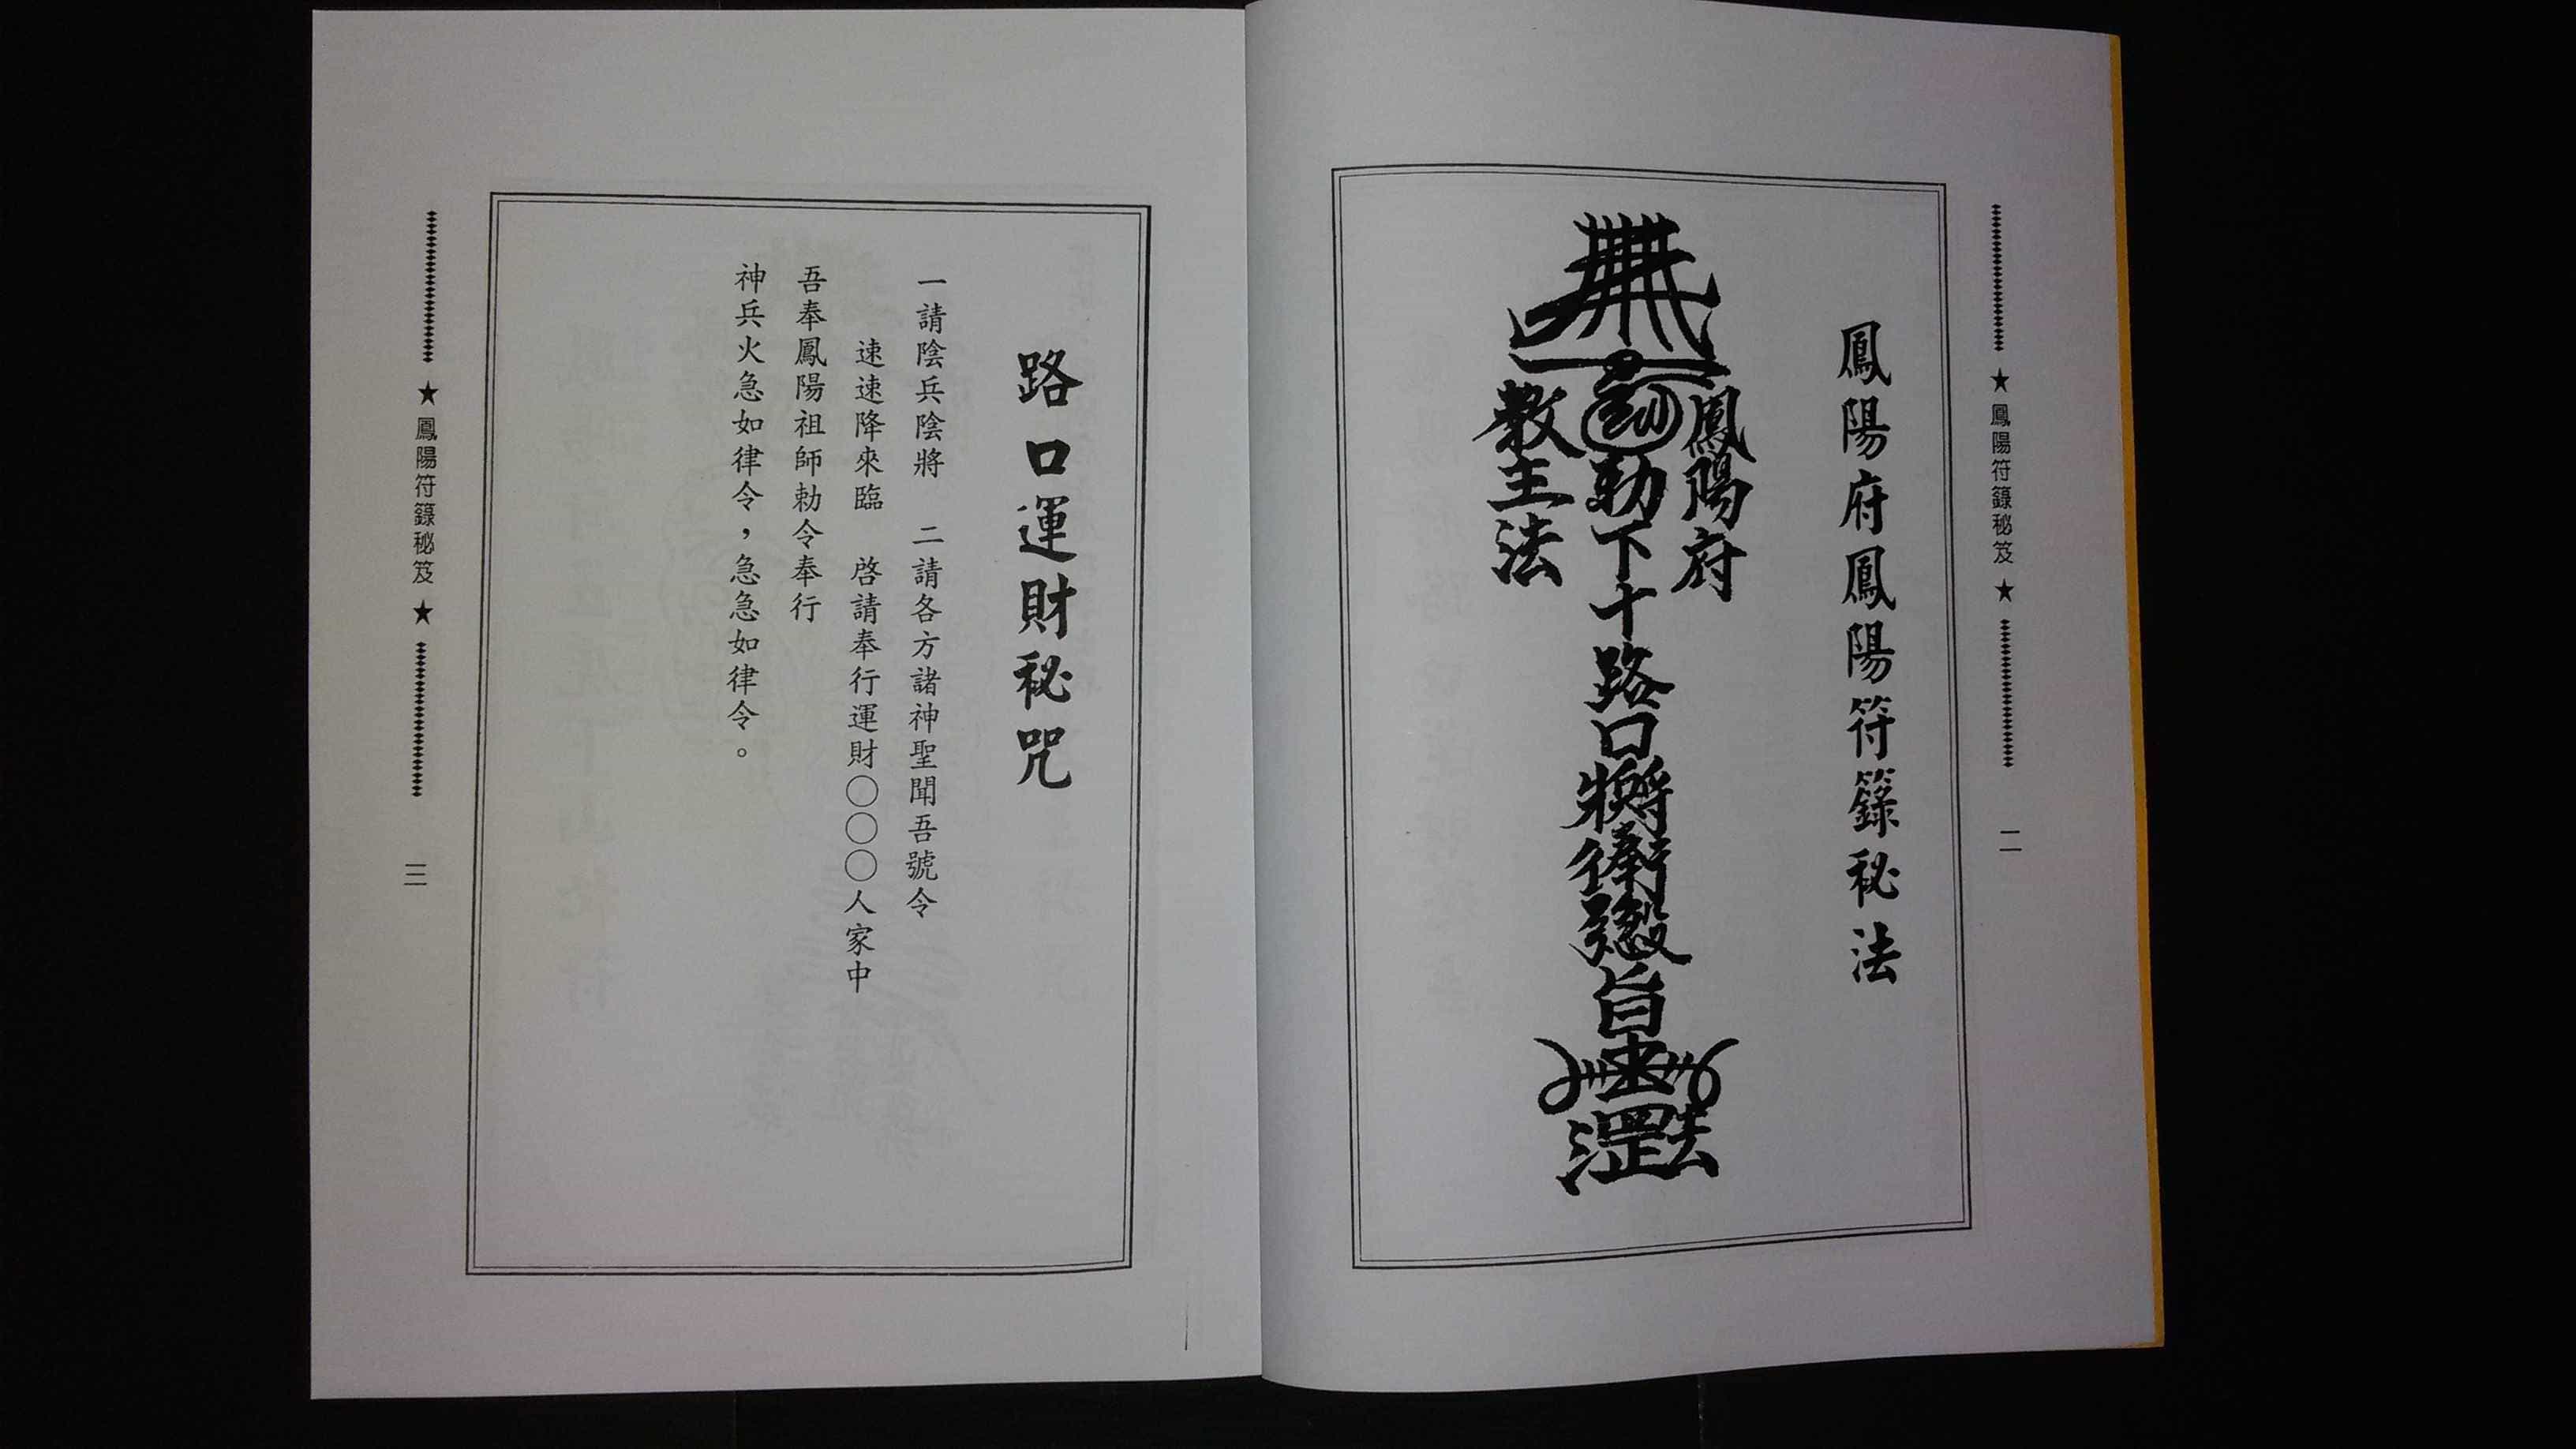 ★鳳陽符籙秘笈★
二
鳳陽府鳳陽符籙秘法
鳳陽府
勅下十路口
旨
教主法
路口運財秘咒
一請陰兵陰將　二請各方諸神聖聞吾號令
速速降來臨　啓請奉行運財○○○人家中
吾奉鳳陽祖師勅令奉行
神兵火急如律令，急急如律令。
★鳳陽符籙秘笈★
三